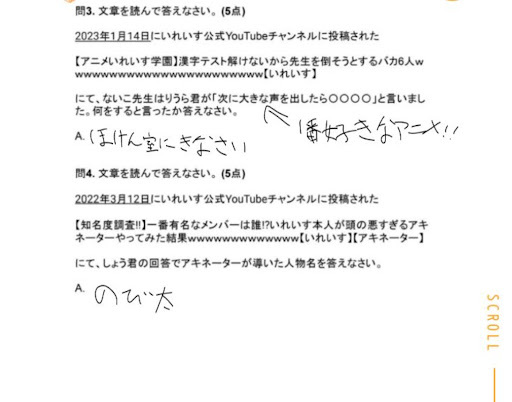 問3. 文章を読んで答えなさい。(5点)
2023年1月14日にいれいす公式YouTubeチャンネルに投稿された
【アニメいれいす学園】漢字テスト解けないから先生を倒そうとするバカ6人w
wwwwwwwwwwwwwwwwwwwwwwww【いれいす】
にて、ないこ先生はりうら君が「次に大きな声を出したら〇〇〇〇」と言いまし
た。何をすると言ったか答えなさい。
A. ほけん室にきなさい
1番好きなアニメ!!
問4. 文章を読んで答えなさい。(5点)
2022年3月12日にいれいす公式YouTubeチャンネルに投稿された
【知名度調査!!】一番有名なメンバーは誰!?いれいす本人が頭の悪すぎるアキ
ネーターやってみた結果wwwwwwwwwwwww【いれいす】【アキネーター】
にて、しょう君の回答でアキネーターが導いた人物名を答えなさい。
A. のび太
SCROLL